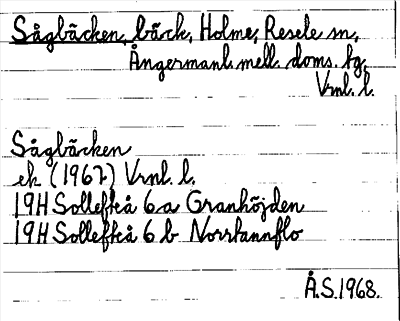 Sågbäcken, bäck, Holme, Resele sn,
Ångermanl. mell. doms. fg,
Vrnl. l.
Sågbäcken
ek (1967) Vrnl. l.
19H Sollefteå 6a Granhöjden
19H Sollefteå 6b Norrtannflo
Å.S. 1968.